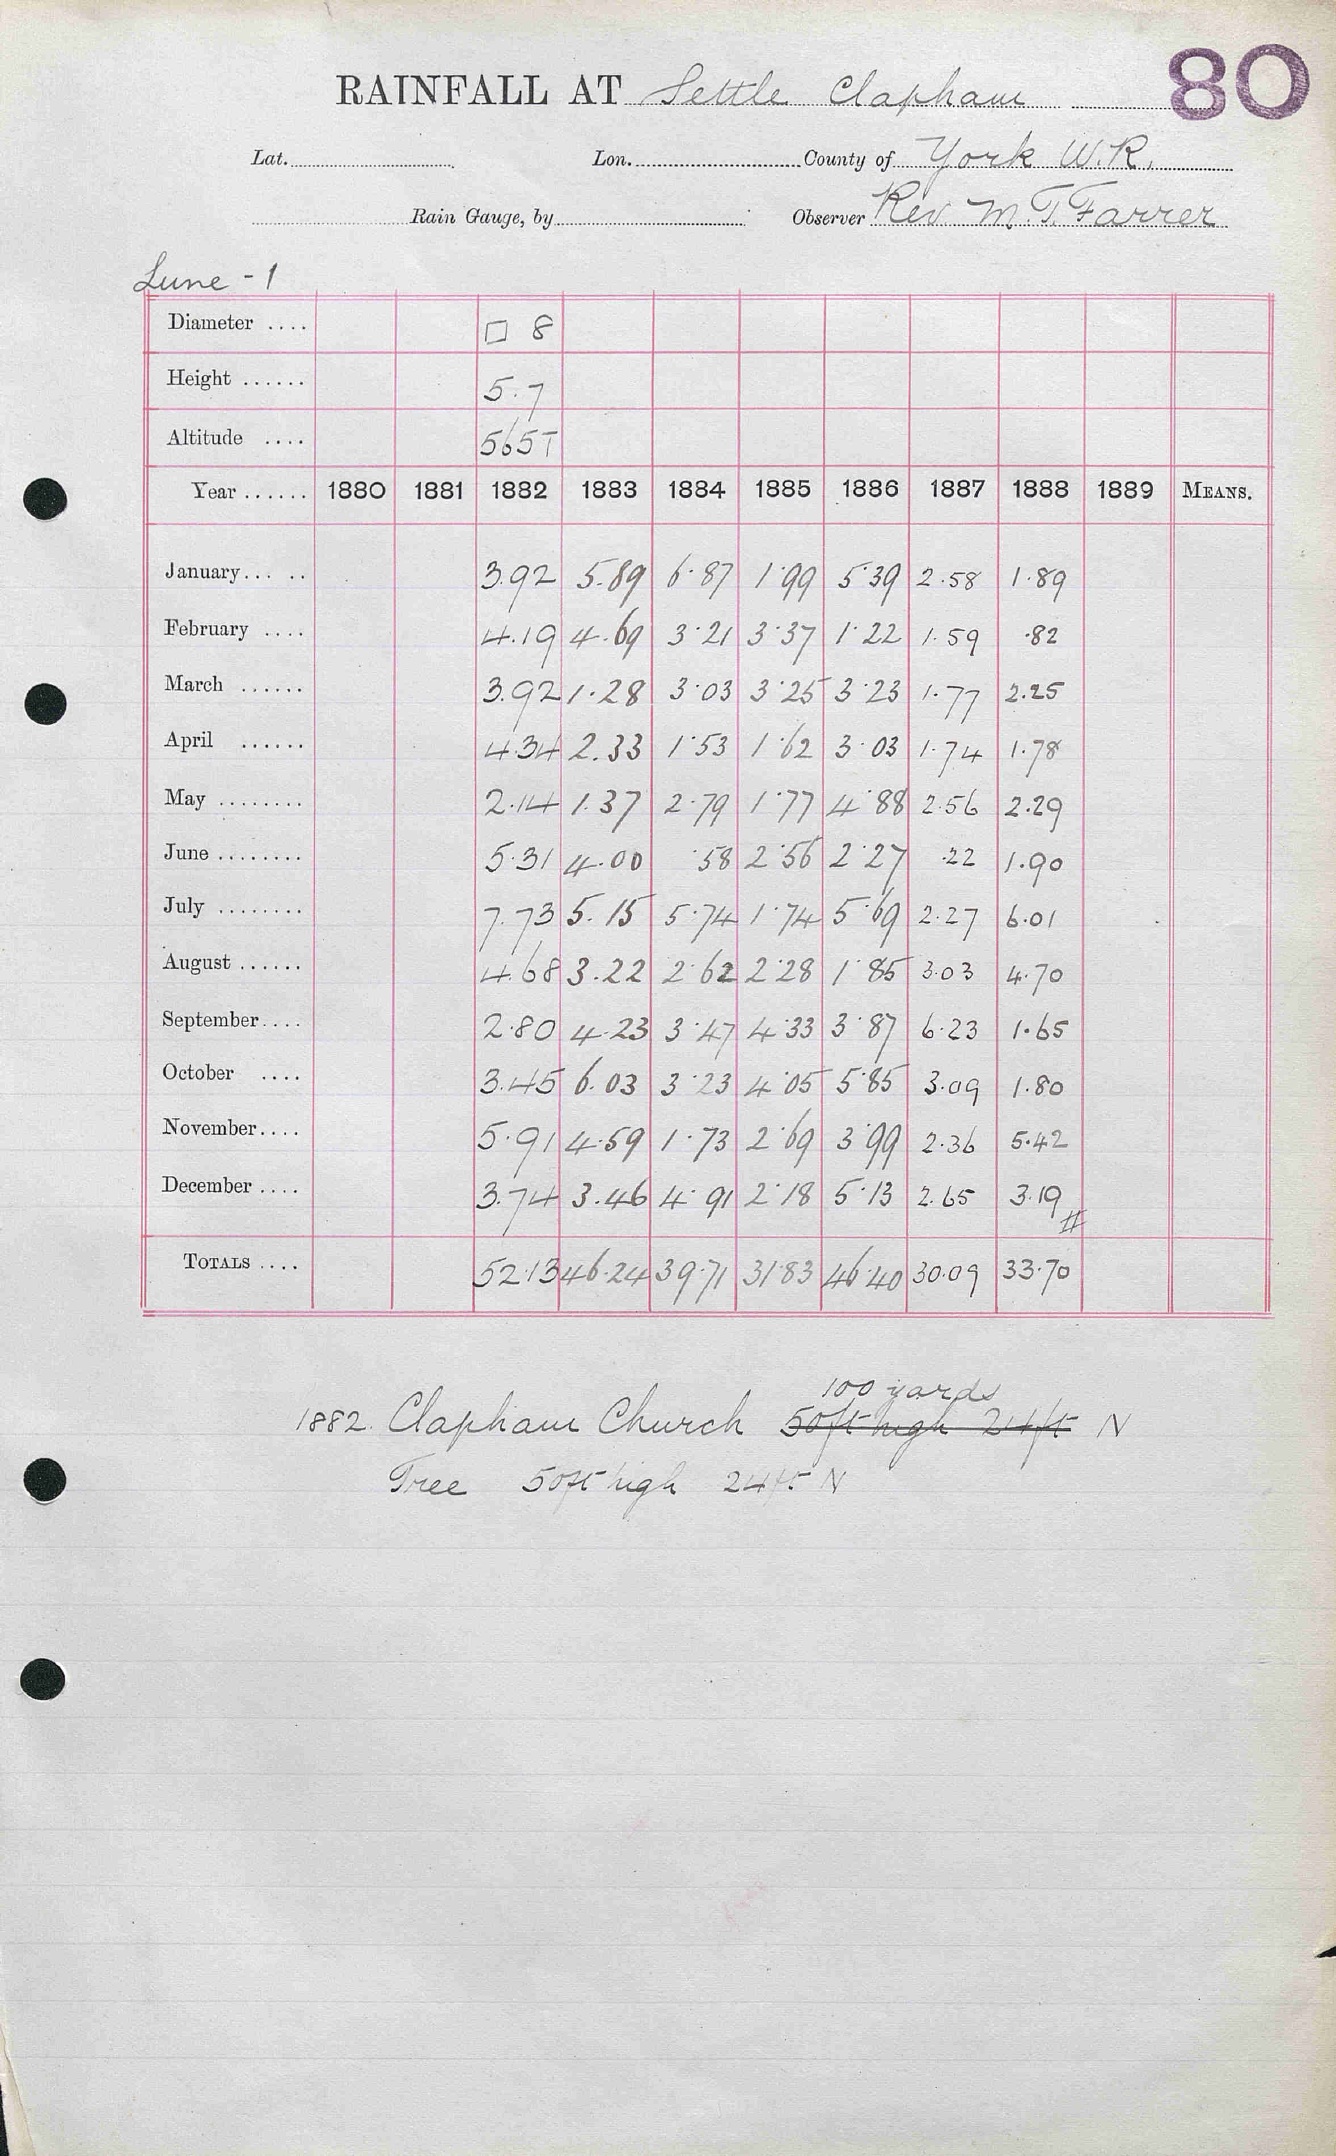 80
RAINFALL AT Settle Clapham
Lat. Lon. County of York W.R.
Rain Gauge, by Observer Rev M.T. Farrer
Lune - 1
Diameter .... □ 8
Height ...... 5.7
Altitude .... 565T
Year ...... 1880 1881 1882 1883 1884 1885 1886 1887 1888 1889 MEANS.
January... .. 3.92 5.89 6.87 1.99 5.39 2.58 1.89
February .... 4.19 4.69 3.21 3.37 1.22 1.59 .82
March ...... 3.92 1.28 3.03 3.25 3.23 1.77 2.25
April ...... 4.34 2.33 1.53 1.62 3.03 1.74 1.78
May ........ 2.14 1.37 2.79 1.77 4.88 2.56 2.29
June ........ 5.31 4.00 .58 2.56 2.27 .22 1.90
July ........ 7.73 5.15 5.74 1.74 5.69 2.27 6.01
August ...... 4.68 3.22 2.62 2.28 1.85 3.03 4.70
September.... 2.80 4.23 3.47 4.33 3.87 6.23 1.65
October .... 3.45 6.03 3.23 4.05 5.85 3.09 1.80
November.... 5.91 4.59 1.73 2.69 3.99 2.36 5.42
December .... 3.74 3.46 4.91 2.18 5.13 2.65 3.19 #
TOTALS .... 52.13 46.24 39.71 31.83 46.40 30.09 33.70
100 yards
1882. Clapham Church 50ft high 24ft N
Tree 50ft high 24ft N